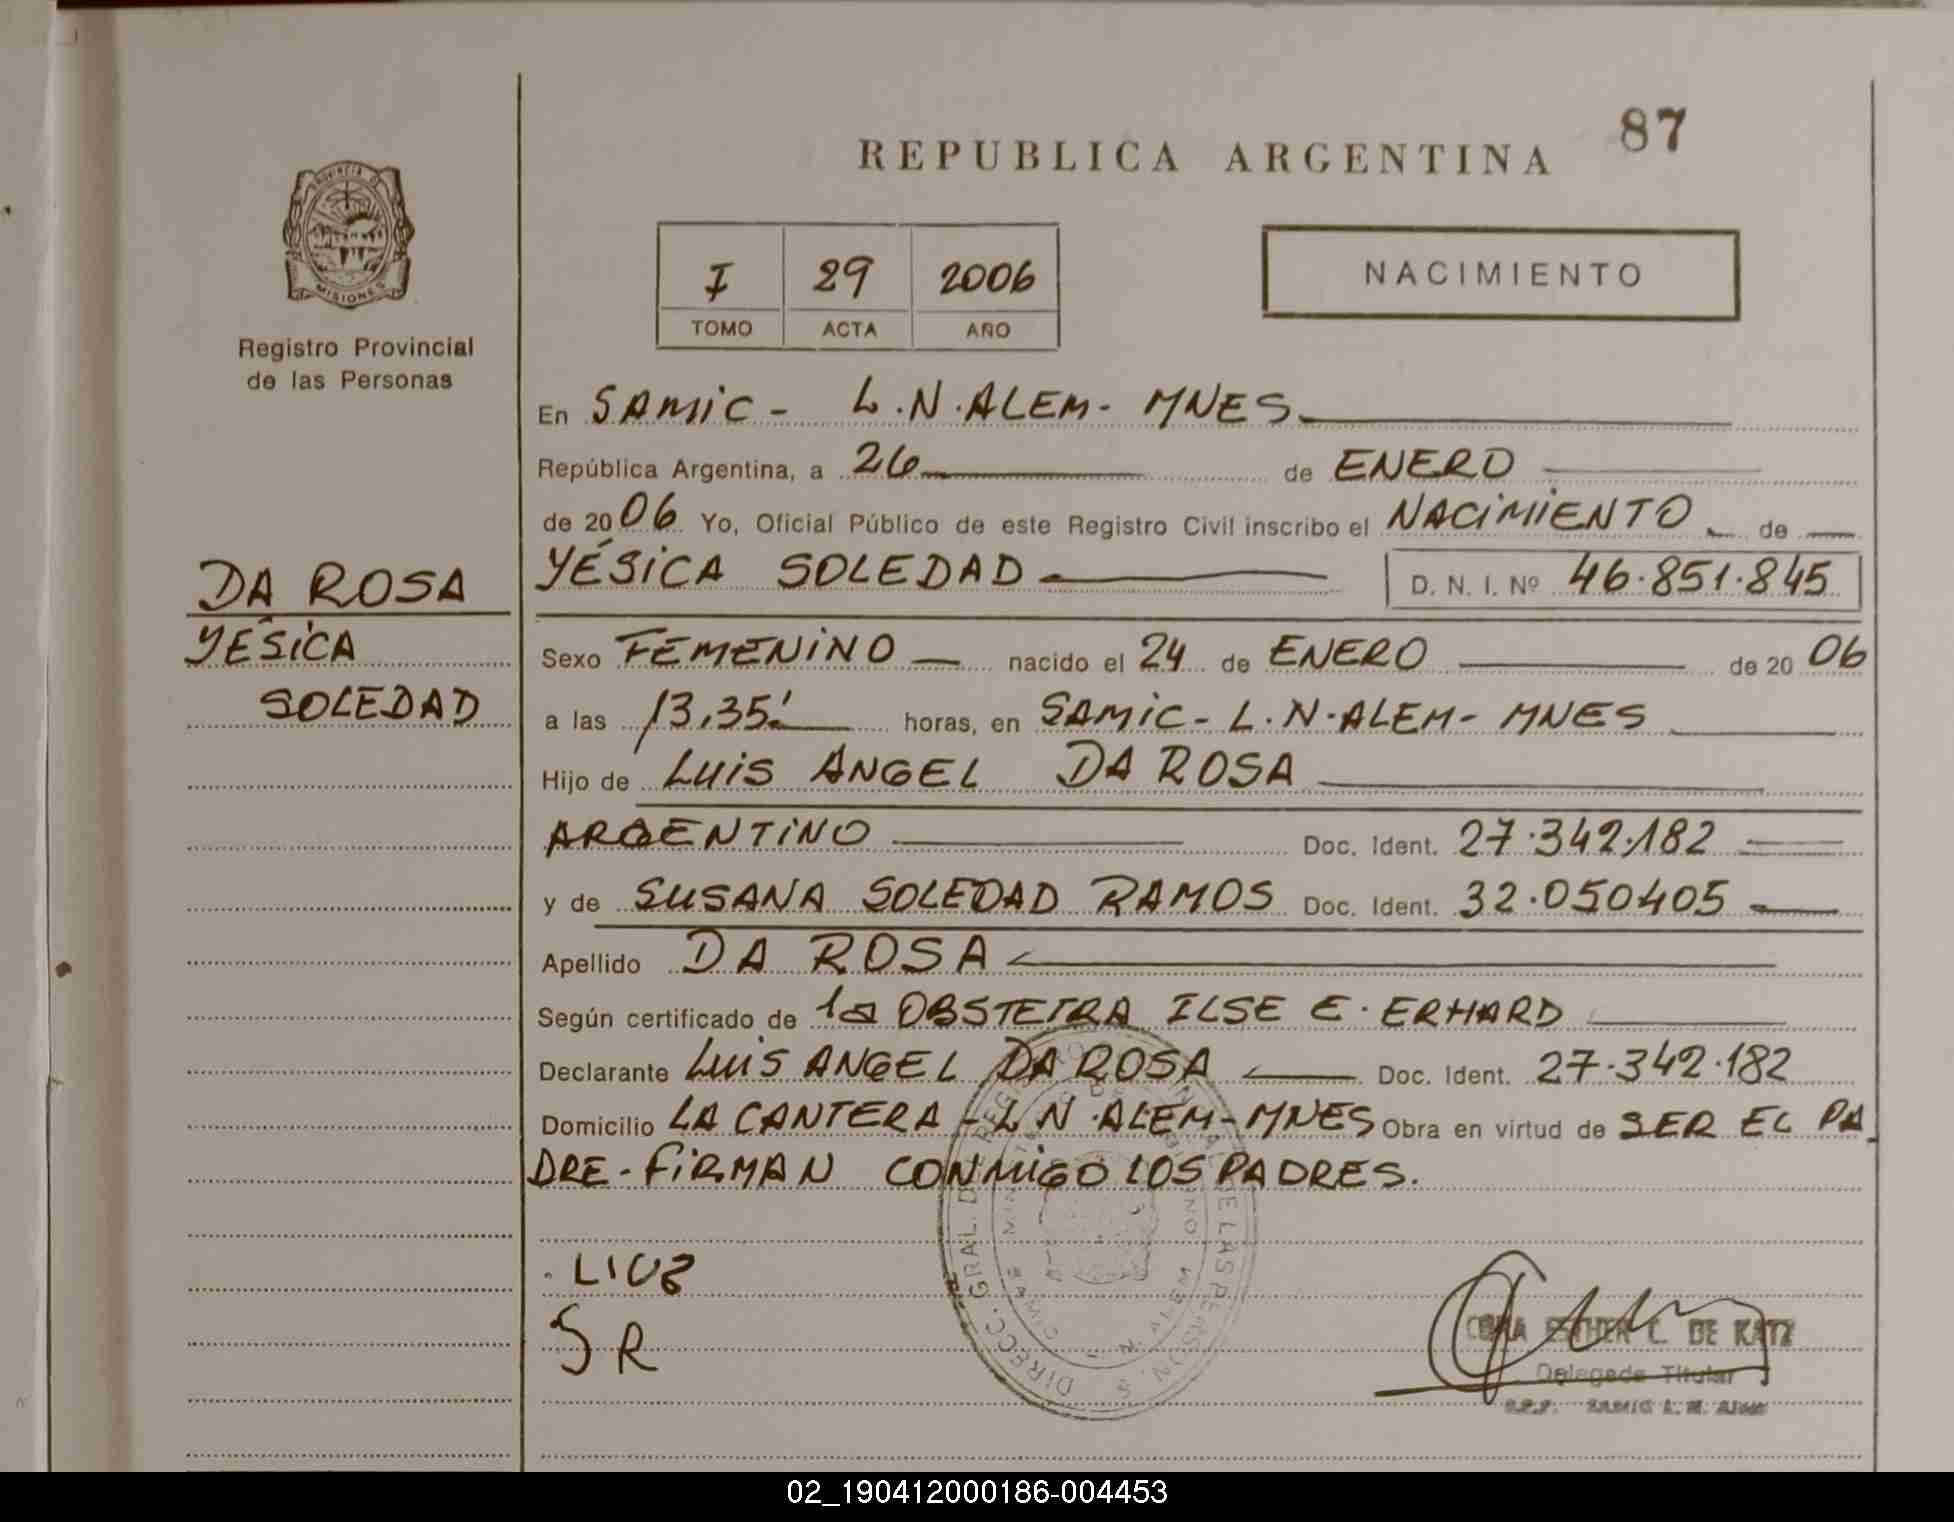 87
REPUBLICA ARGENTINA
PROVINCIA DE
MISIONES
Registro Provincial
de las Personas
I 29 2006
TOMO ACTA AÑO
NACIMIENTO
En SAMIC - L.N.ALEM - MNES
República Argentina, a 26 de ENERO
de 2006 Yo, Oficial Público de este Registro Civil inscribo el NACIMIENTO de
YÉSICA SOLEDAD D. N. I. Nº 46.851.845
DA ROSA
YÉSICA
SOLEDAD
Sexo FEMENINO nacido el 24 de ENERO de 2006
a las 13,35' horas, en SAMIC - L.N.ALEM - MNES
Hijo de LUIS ANGEL DA ROSA
ARGENTINO Doc. Ident. 27.342.182
y de SUSANA SOLEDAD RAMOS Doc. Ident. 32.050405
Apellido DA ROSA
Según certificado de la OBSTETRA ILSE E. ERHARD
Declarante LUIS ANGEL DA ROSA Doc. Ident. 27.342.182
Domicilio LA CANTERA - L N. ALEM - MNES Obra en virtud de SER EL PA
DRE - FIRMAN CONMIGO LOS PADRES.
S R
ESTHER C. DE KATZ
Delegada Titular
SAMIC L. N. ALEM
02_190412000186-004453